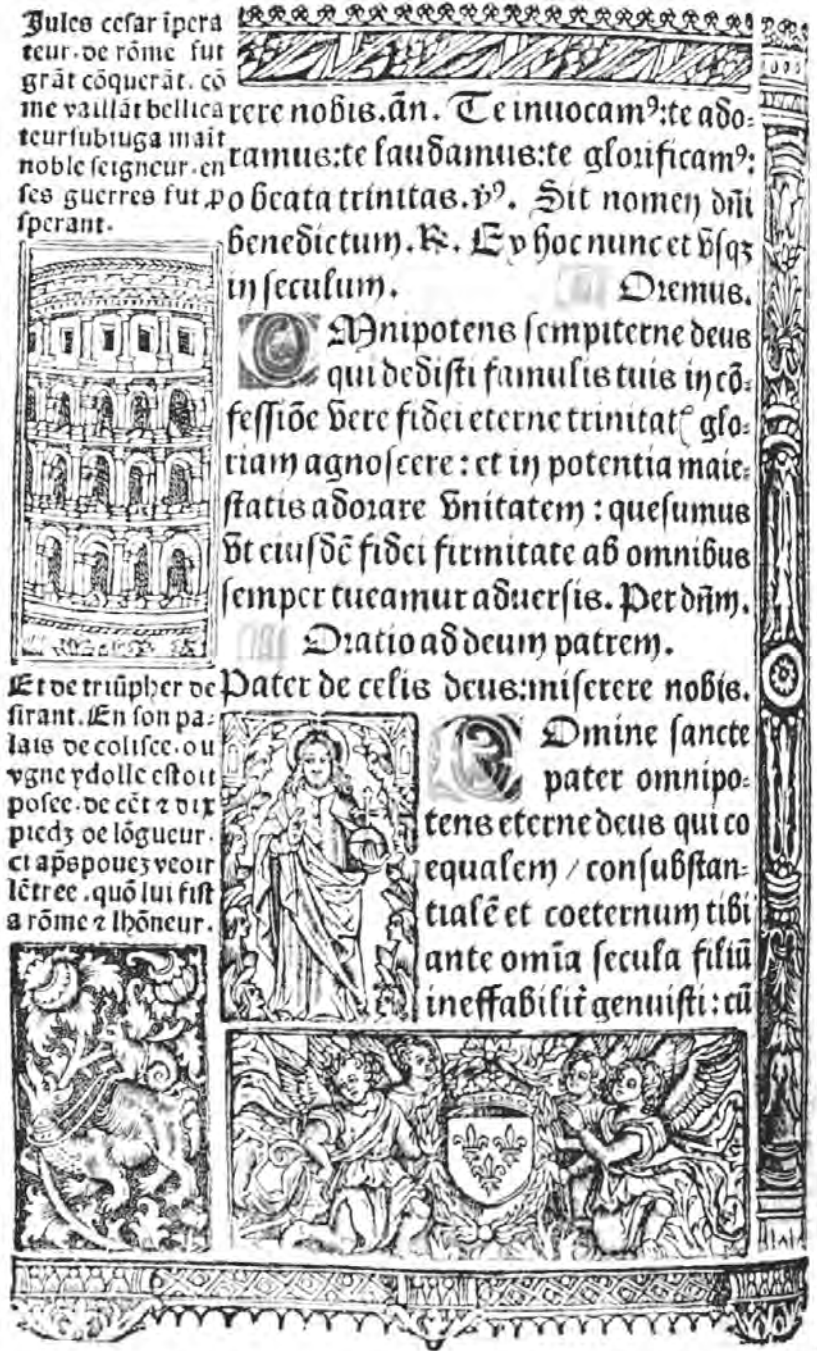 Jules cesar īpera
teur. de rōme fut
grāt cōquerāt. cō
me vaillāt bellica
teur subiuga maīt
noble seigneur. en
ses guerres fut ꝓ
sperant.
Et de triūpher de
sirant. En son pa-
lais de colisee. ou
vgne ydolle estoit
posee. de cēt ⁊ dix
piedz de lōgueur.
ci ap̄s pouez veoir
lētree. quō lui fist
a rōme ⁊ lhōneur.
rere nobis. ān. Te inuocamꝰ: te ado-
ramus: te laudamus: te glorificamꝰ:
o beata trinitas. v̄ꝰ. Sit nomen dn̄i
benedictum. ℟. Ex hoc nunc et vsqꝫ
in seculum. Oremus.
OMnipotens sempiterne deus
qui dedisti famulis tuis in cō-
fessiōe vere fidei eterne trinitatꝭ glo-
riam agnoscere: et in potentia maie-
statis adorare vnitatem: quesumus
vt eiusdē fidei firmitate ab omnibus
semper tueamur aduersis. Per dn̄m.
Oratio ad deum patrem.
Pater de celis deus: miserere nobis.
Omine sancte
pater omnipo-
tens eterne deus qui co
equalem / consubstan-
tialē et coeternum tibi
ante omīa secula filiū
ineffabilit̄ genuisti: cū